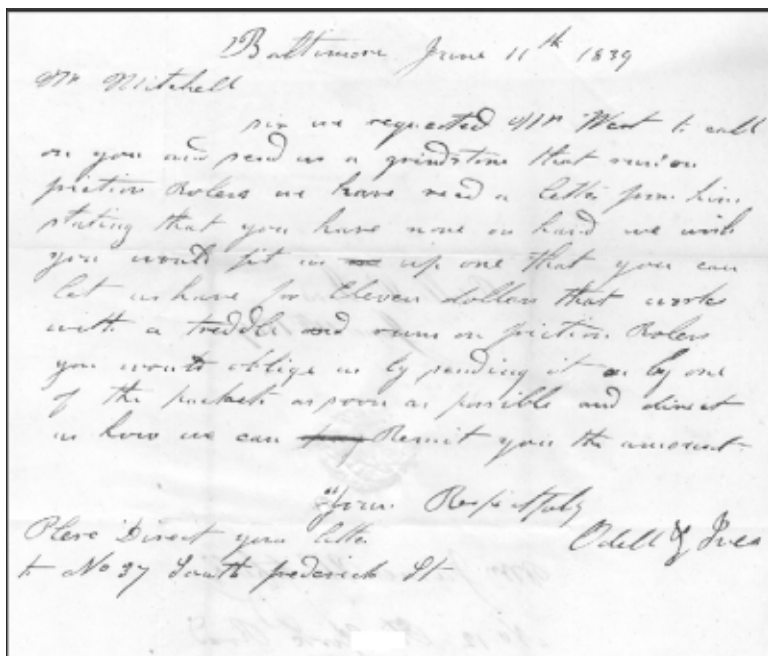 Baltimore June 11th 1839
Mr Mitchell
sir we requested Mr West to call
on you and send us a grindstone that runs on
friction Rolers we have recd a letter from him
stating that you have none on hand we wish
you would fit us up one that you can
let us have for Eleven dollars that works
with a treddle and runs on friction Rolers
you would oblige us by sending it on by one
of the packets as soon as possible and direct
us how we can Remit you the amount
Yours Respectfuly
Odell & Ives
Plese Direct your letter
to No 37 South frederick St